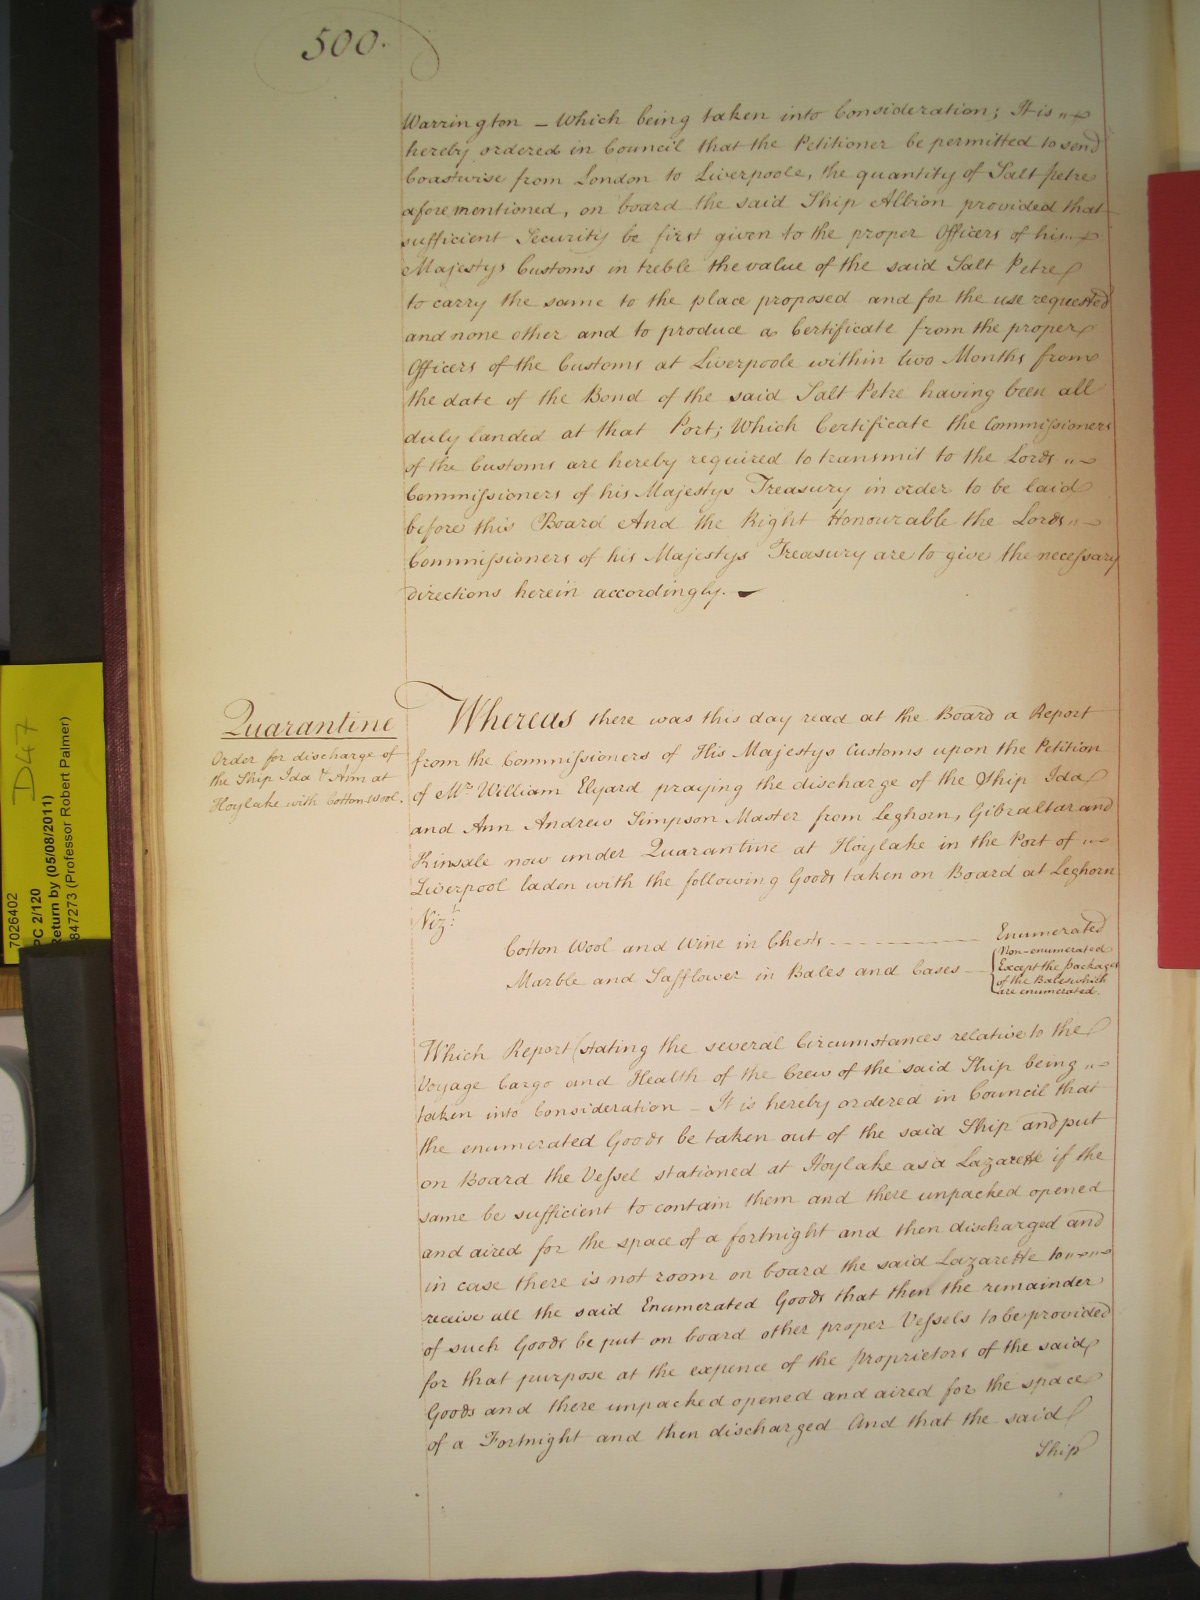 500.
Warrington – Which being taken into Consideration; It is
hereby ordered in Council that the Petitioner be permitted to send
Coastwise from London to Liverpoole, the quantity of Salt petre
aforementioned, on board the said Ship Albion provided that
sufficient Security be first given to the proper Officers of his
Majestys Customs in treble the value of the said Salt Petre
to carry the same to the place proposed and for the use requested
and none other and to produce a Certificate from the proper
Officers of the Customs at Liverpoole within two Months from
the date of the Bond of the said Salt Petre having been all
duly landed at that Port; Which Certificate the Commissioners
of the Customs are hereby required to transmit to the Lords
Commissioners of his Majestys Treasury in order to be laid
before this Board And the Right Honourable the Lords
Commissioners of his Majestys Treasury are to give the necessary
directions herein accordingly.
Quarantine
Order for discharge of
the Ship Ida & Ann at
Hoylake with Cotton wool.
Whereas there was this day read at the Board a Report
from the Commissioners of His Majestys Customs upon the Petition
of Mr. William Elyard praying the discharge of the Ship Ida
and Ann Andrew Simpson Master from Leghorn, Gibraltar and
Kinsale now under Quarantine at Hoylake in the Port of
Liverpool laden with the following Goods taken on Board at Leghorn
Vizt.
Cotton Wool and Wine in Chests - - - - - - - Enumerated
Marble and Safflower in Bales and Cases – Non-enumerated
Except the packages
of the Bales which
are enumerated.
Which Report (stating the several Circumstances relative to the
Voyage Cargo and Health of the Crew of the said Ship being
taken into Consideration – It is hereby ordered in Council that
the enumerated Goods be taken out of the said Ship and put
on Board the Vessel stationed at Hoylake as a Lazarette if the
same be sufficient to contain them and there unpacked opened
and aired for the space of a fortnight and then discharged and
in case there is not room on board the said Lazarette to
receive all the said Enumerated Goods that then the remainder
of such Goods be put on board other proper Vessels to be provided
for that purpose at the expence of the Proprietors of the said
Goods and there unpacked opened and aired for the space
of a Fortnight and then discharged And that the said
Ship
D47
7026402
PC 2/120
Return by (05/08/2011)
847273 (Professor Robert Palmer)